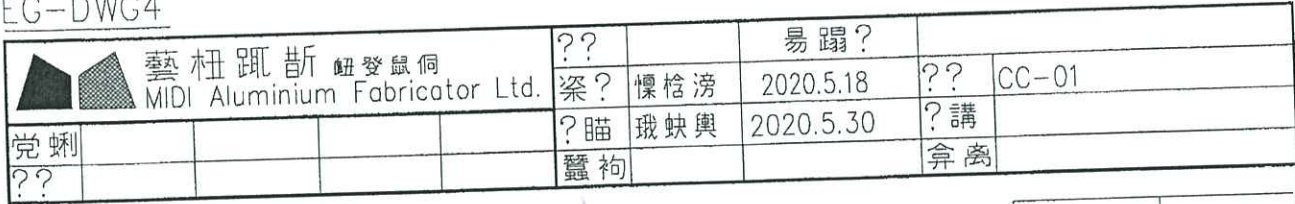 EG-DWG4
?? 易蹋?
藝杻踂斮 衈登鼠侗
MIDI Aluminium Fabricator Ltd.
粢? 慄桰滂 2020.5.18 ?? CC-01
?瞄 珴蚗輿 2020.5.30 ?講
党蜊
?? 蠶袧 弇离